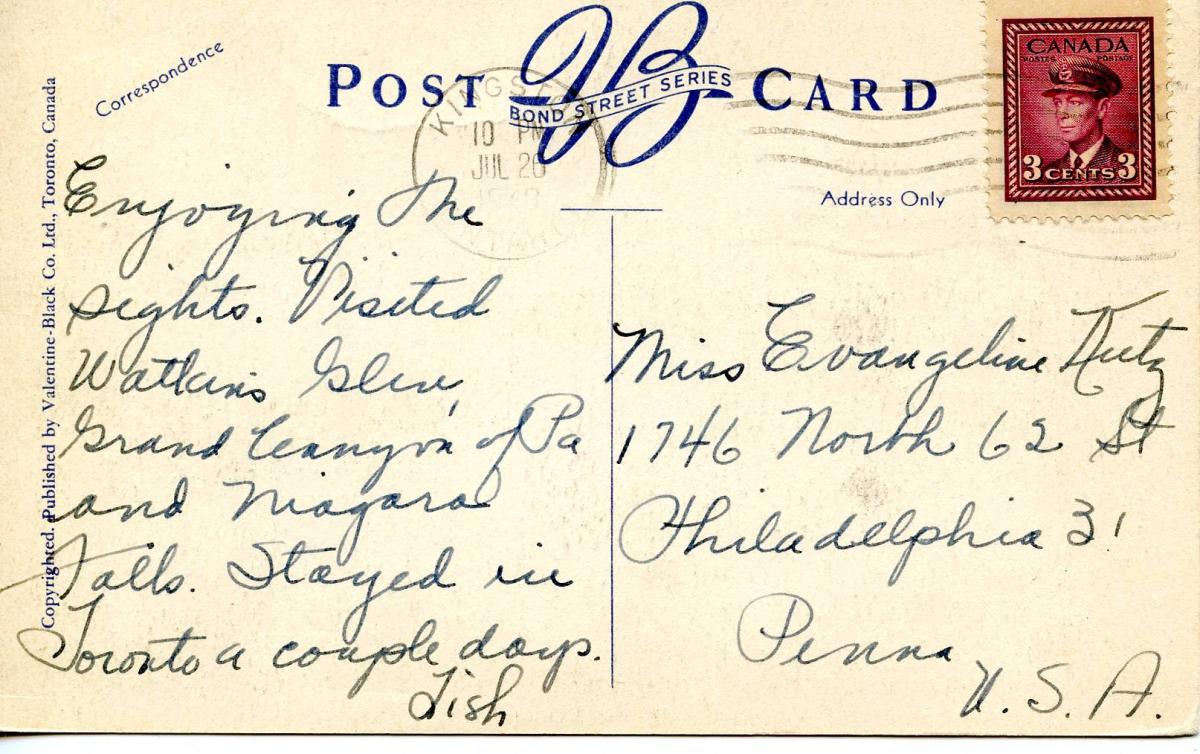 Correspondence
POST CARD
BOND STREET SERIES
KINGSTON
10 PM
JUL 26
CANADA
POSTES POSTAGE
3 CENTS 3
Address Only
Copyrighted. Published by Valentine-Black Co. Ltd., Toronto, Canada
Enjoying the
sights. Visited
Watkins Glen,
Grand Canyon of Pa
and Niagara
Falls. Stayed in
Toronto a couple days.
Tish
Miss Evangeline Kutz
1746 North 62 St
Philadelphia 31
Penna
U.S.A.